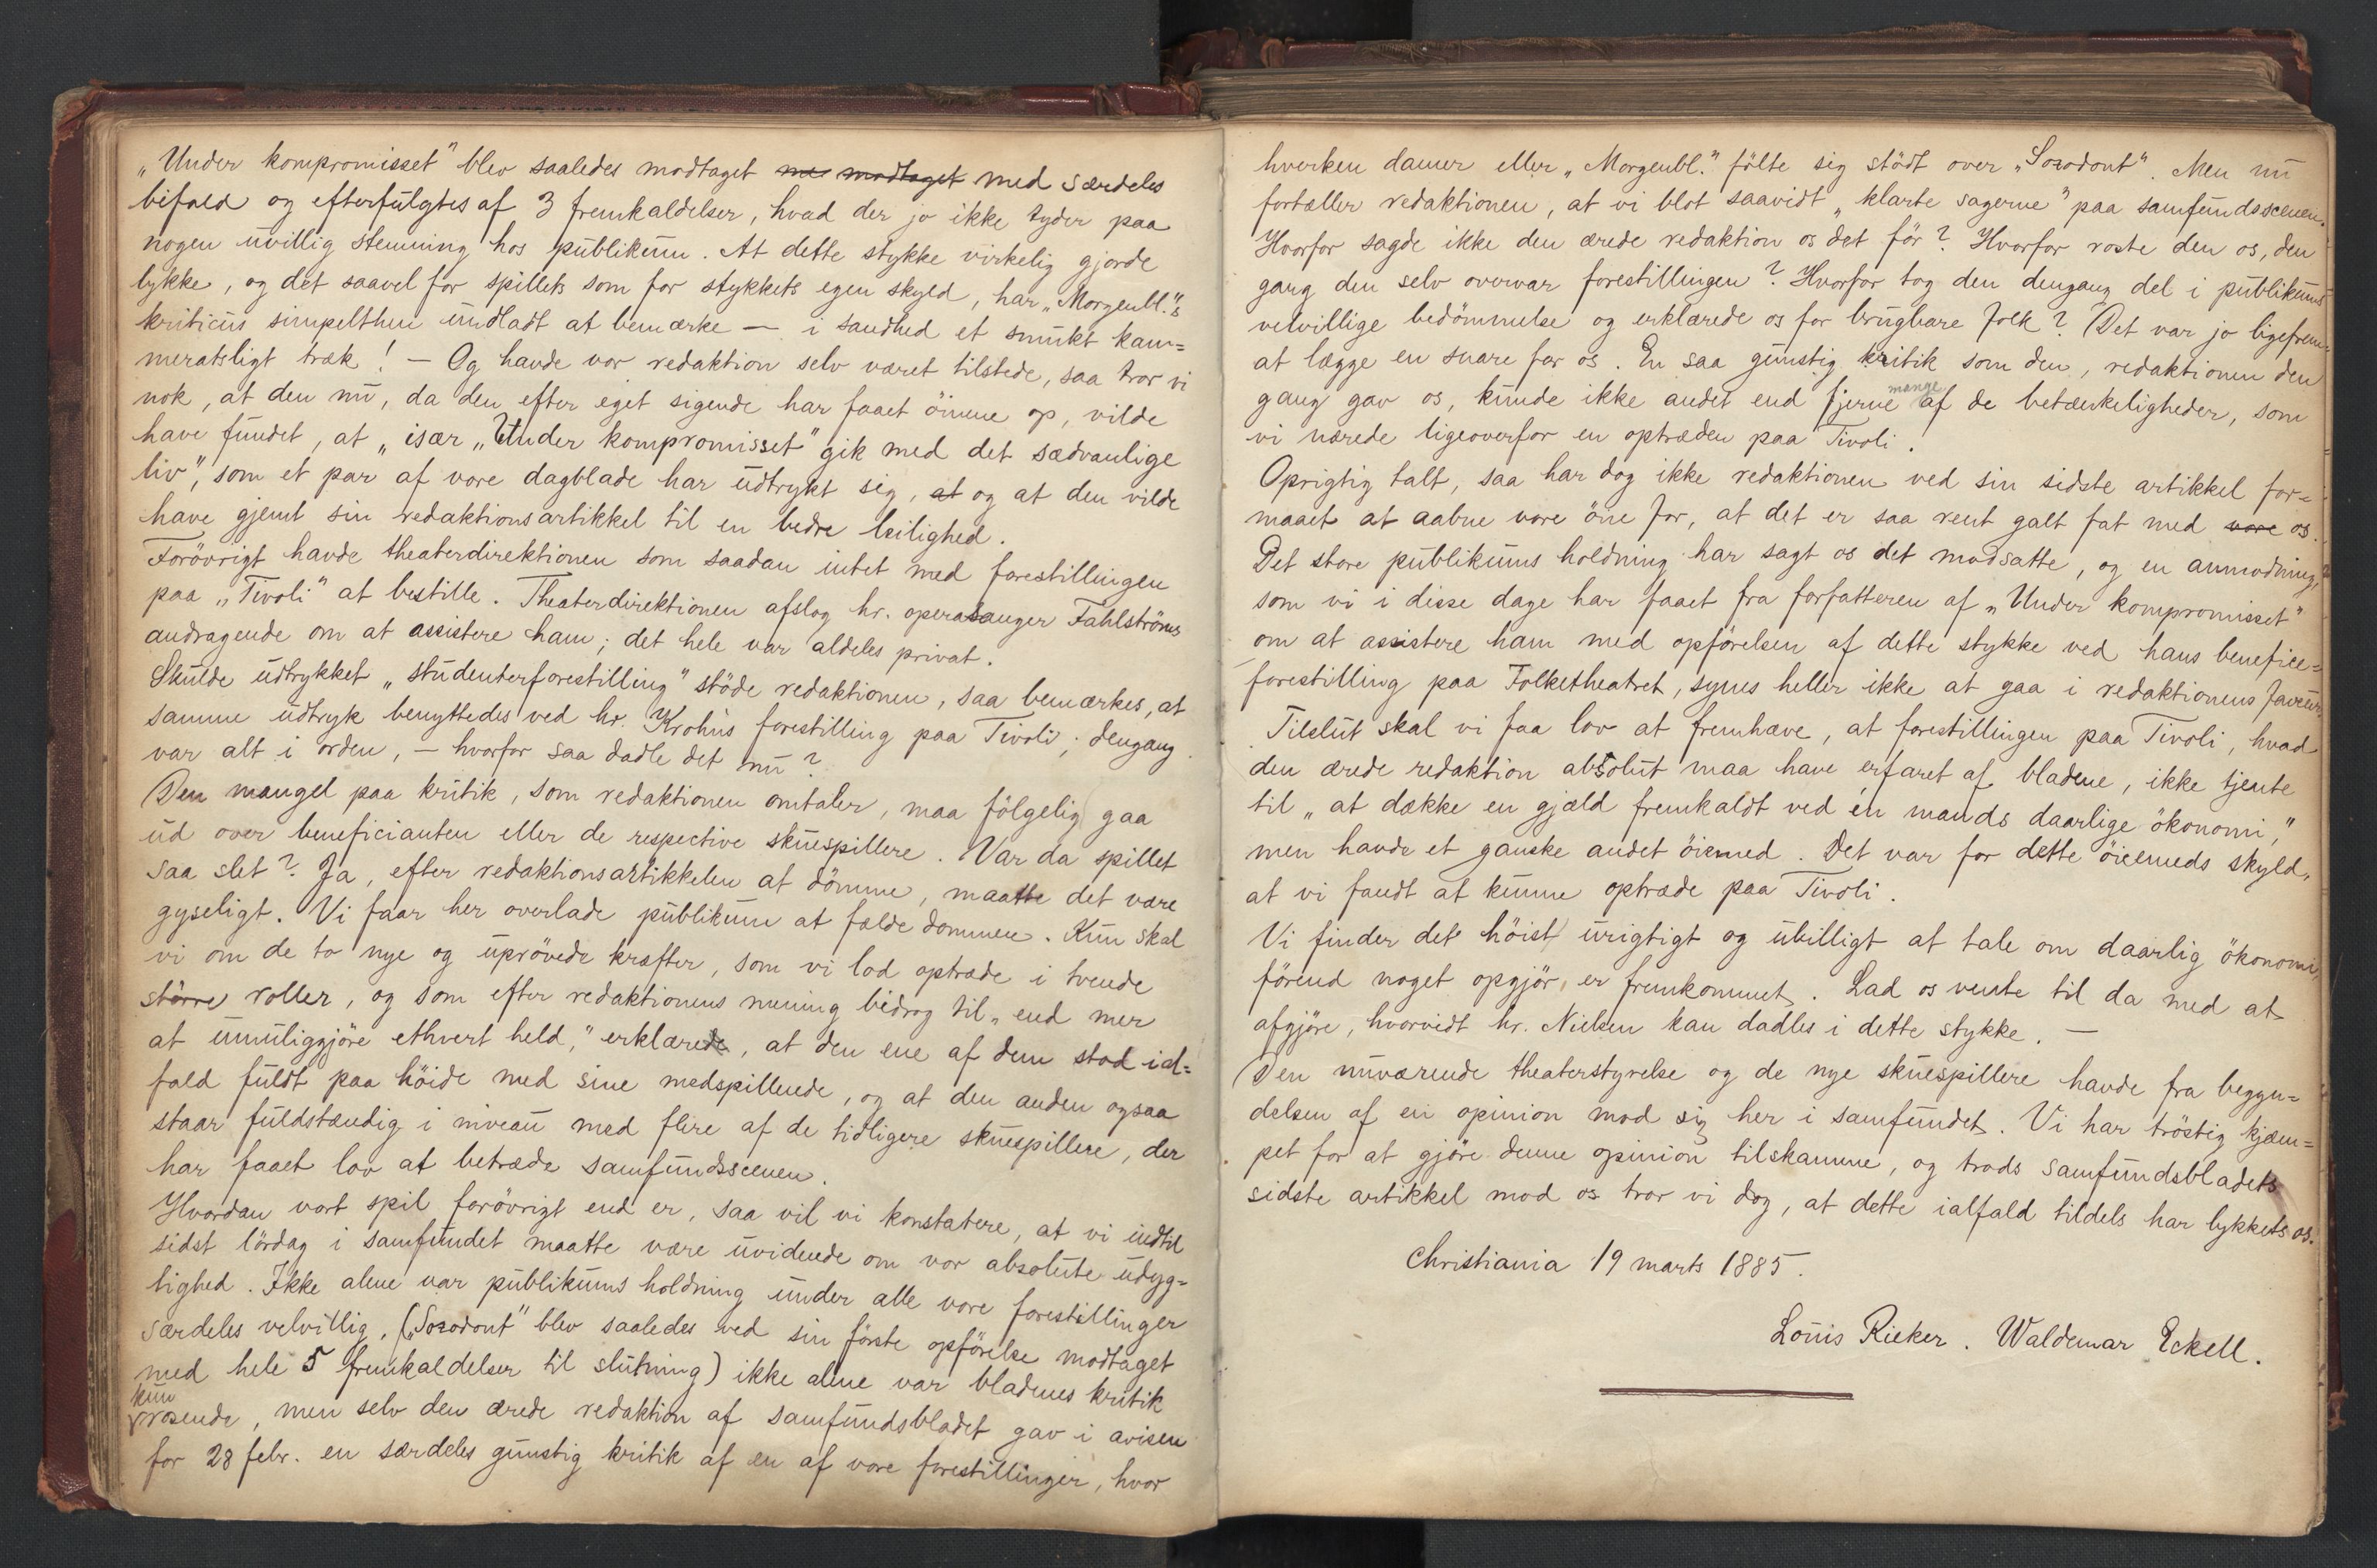 „Under kompromisset" blev saaledes modtaget mes modtaget med særdeles
bifald og efterfulgtes af 3 fremkaldelser, hvad der jo ikke tyder paa
nogen uvillig stemning hos publikum. At dette stykke virkelig gjorde
lykke, og det saavel for spillets som for stykkets egen skyld, har „Morgenbl."s
kriticus simpelthen undladt at bemærke — i sandhed et smukt kam=
meratsligt træk! — Og havde vor redaktion selv været tilstede, saa tror vi
nok, at den nu, da den efter eget sigende har faaet öinene op, vilde
have fundet, at „især „Under kompromisset" gik med det sædvanlige
liv", som et par af vore dagblade har udtrykt sig, at og at den vilde
have gjemt sin redaktionsartikkel til en bedre leilighed.
Forövrigt havde theaterdirektionen som saadan intet med forestillingen
paa „Tivoli" at bestille. Theaterdirektionen afslog hr. operasanger Fahlströms
andragende om at assistere ham; det hele var aldeles privat.
Skulde udtrykket „studenterforestilling" stöde redaktionen, saa bemærkes, at
samme udtryk benyttedes ved hr. Krohns forestilling paa Tivoli; dengang
var alt i orden, — hvorfor saa dadle det nu?
Den mangel paa kritik, som redaktionen omtaler, maa fölgelig gaa
ud over beneficianten eller de respective skuespillere. Var da spillet
saa slet? Ja, efter redaktionsartikkelen at dömme, maatte det være
gyseligt. Vi faar her overlade publikum at fælde dommen. Kun skal
vi om de to nye og uprövede kræfter, som vi lod optræde i tvende
större roller, og som efter redaktionens mening bidrog til „end mer
at umuliggjöre ethvert held," erklærede, at den ene af dem stod ial=
fald fuldt paa höide med sine medspillende, og at den anden ogsaa
staar fuldstændig i niveau med flere af de tidligere skuespillere, der
har faaet lov at betræde samfundsscenen.
Hvordan vort spil forövrigt end er, saa vil vi konstatere, at vi indtil
sidst lördag i samfundet maatte være uvidende om vor absolute udyg=
tighed. Ikke alene var publikums holdning under alle vore forestillinger
særdeles velvillig, („Sozodont" blev saaledes ved sin förste opförelse modtaget
med hele 5 fremkaldelser til slutning) ikke alene var bladenes kritik
kun
rosende, men selv den ærede redaktion af samfundsbladet gav i avisen
for 28 febr. en særdeles gunstig kritik af en af vore forestillinger, hvor
hverken damer eller „Morgenbl." fölte sig stödt over „Sozodont". Men nu
fortæller redaktionen, at vi blot saavidt „klarte sagerne" paa samfundsscenen.
Hvorfor sagde ikke den ærede redaktion os det för? Hvorfor roste den os, den
gang den selv overvar forestillingen? Hvorfor tog den dengang del i publikums
velvillige bedömmelse og erklærede os for brugbare folk? Det var jo ligefrem
at lægge en snare for os. En saa gunstig kritik som den, redaktionen den
gang gav os, kunde ikke andet end fjerne mange af de betænkeligheder, som
vi nærede ligeoverfor en optræden paa Tivoli.
Oprigtig talt, saa har dog ikke redaktionen ved sin sidste artikkel for=
maaet at aabne vore öne for, at det er saa rent galt fat med vore os.
Det store publikums holdning har sagt os det modsatte, og en anmodning,
som vi i disse dage har faaet fra forfatteren af „Under kompromisset"
om at assistere ham med opförelsen af dette stykke ved hans benefice=
forestilling paa Folketheatret, synes heller ikke at gaa i redaktionens faveur.
Tilslut skal vi faa lov at fremhæve, at forestillingen paa Tivoli, hvad
den ærede redaktion absolut maa have erfaret af bladene, ikke tjente
til „at dække en gjæld fremkaldt ved én mands daarlige ökonomi,"
men havde et ganske andet öiemed. Det var for dette öiemeds skyld,
at vi fandt at kunne optræde paa Tivoli.
Vi finder det höist urigtigt og ubilligt at tale om daarlig ökonomi,
förend noget opgjör er fremkommet. Lad os vente til da med at
afgjöre, hvorvidt hr. Nielsen kan dadles i dette stykke. —
Den nuværende theaterstyrelse og de nye skuespillere havde fra begyn=
delsen af en opinion mod sig her i samfundet. Vi har tröstig kjæm=
pet for at gjöre denne opinion tilskamme, og trods samfundsbladets
sidste artikkel mod os tror vi dog, at dette ialfald tildels har lykkets os.
Christiania 19 marts 1885.
Louis Rieker. Waldemar Eckell.